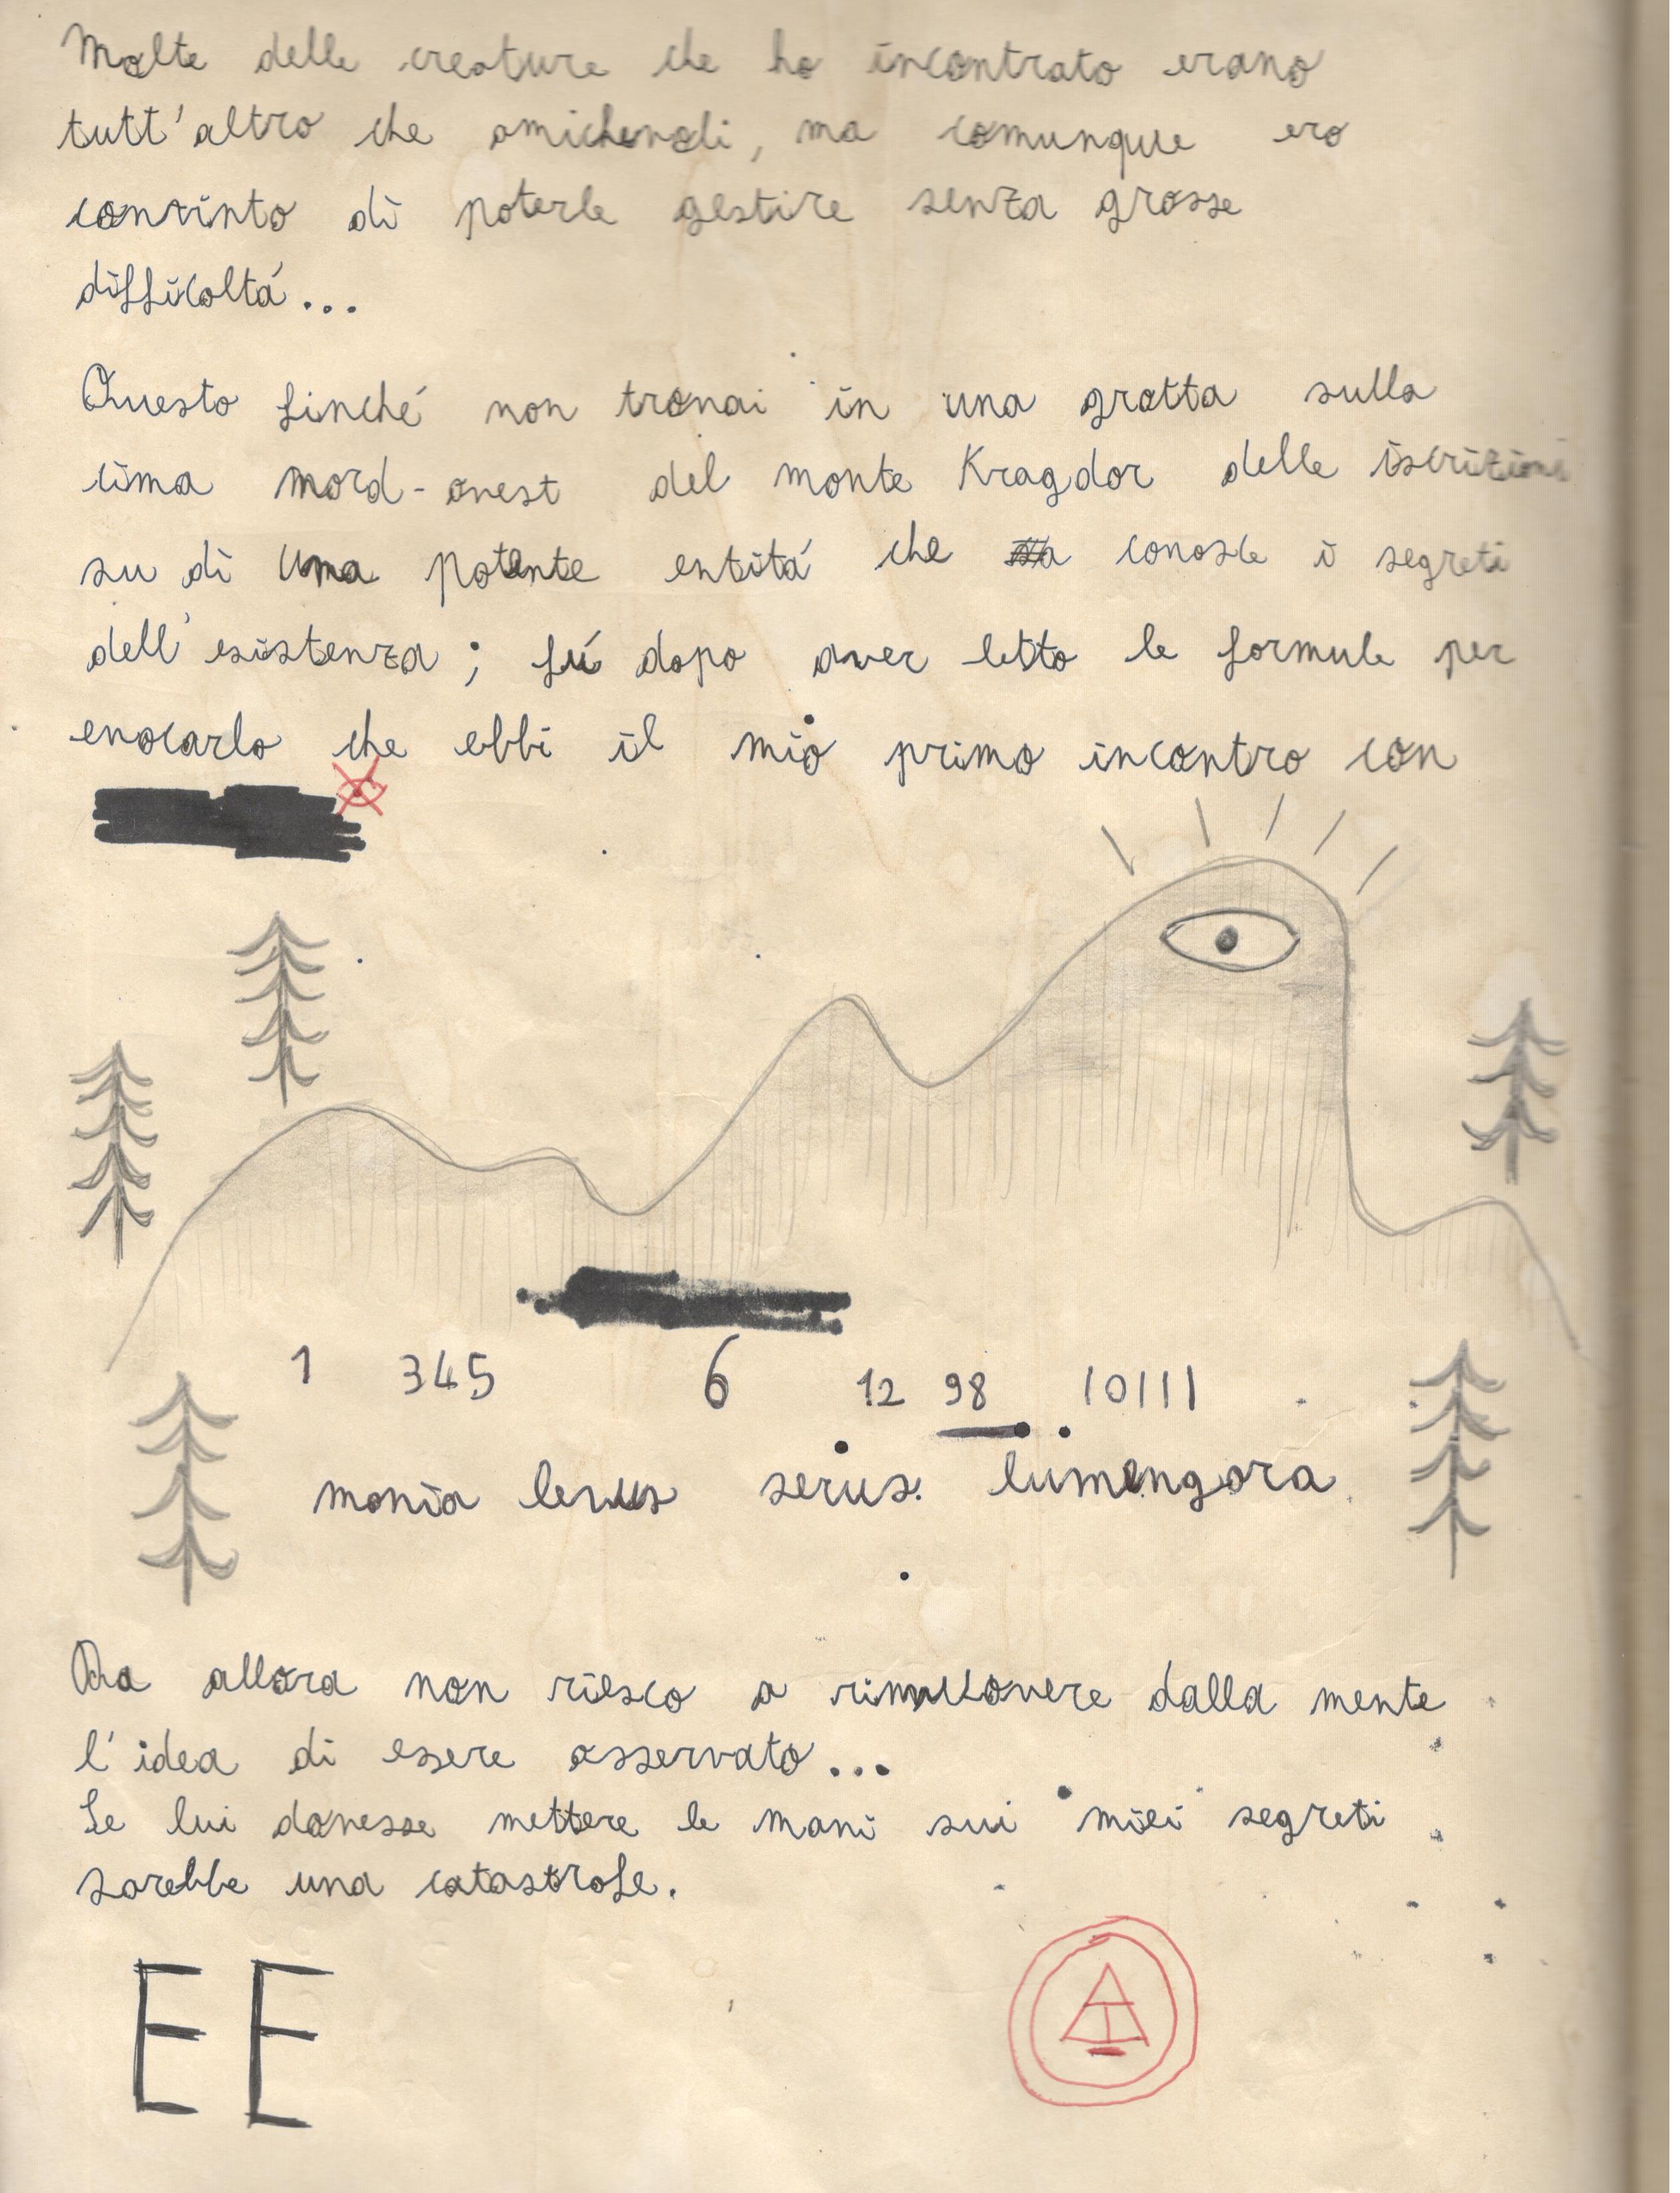 Molte delle creature che ho incontrato erano
tutt'altro che amichevoli, ma comunque ero
convinto di poterle gestire senza grosse
difficoltá...
Questo finché non trovai in una grotta sulla
cima nord-ovest del monte Kragdor delle iscrizioni
su di una potente entitá che conosce i segreti
dell'esistenza; fú dopo aver letto le formule per
evocarlo che ebbi il mio primo incontro con
1 345 6 12 98 10111
monia lexus serus. lumengora
Da allora non riesco a rimuovere dalla mente
l'idea di essere osservato...
Se lui dovesse mettere le mani sui miei segreti
sarebbe una catastrofe.
EE